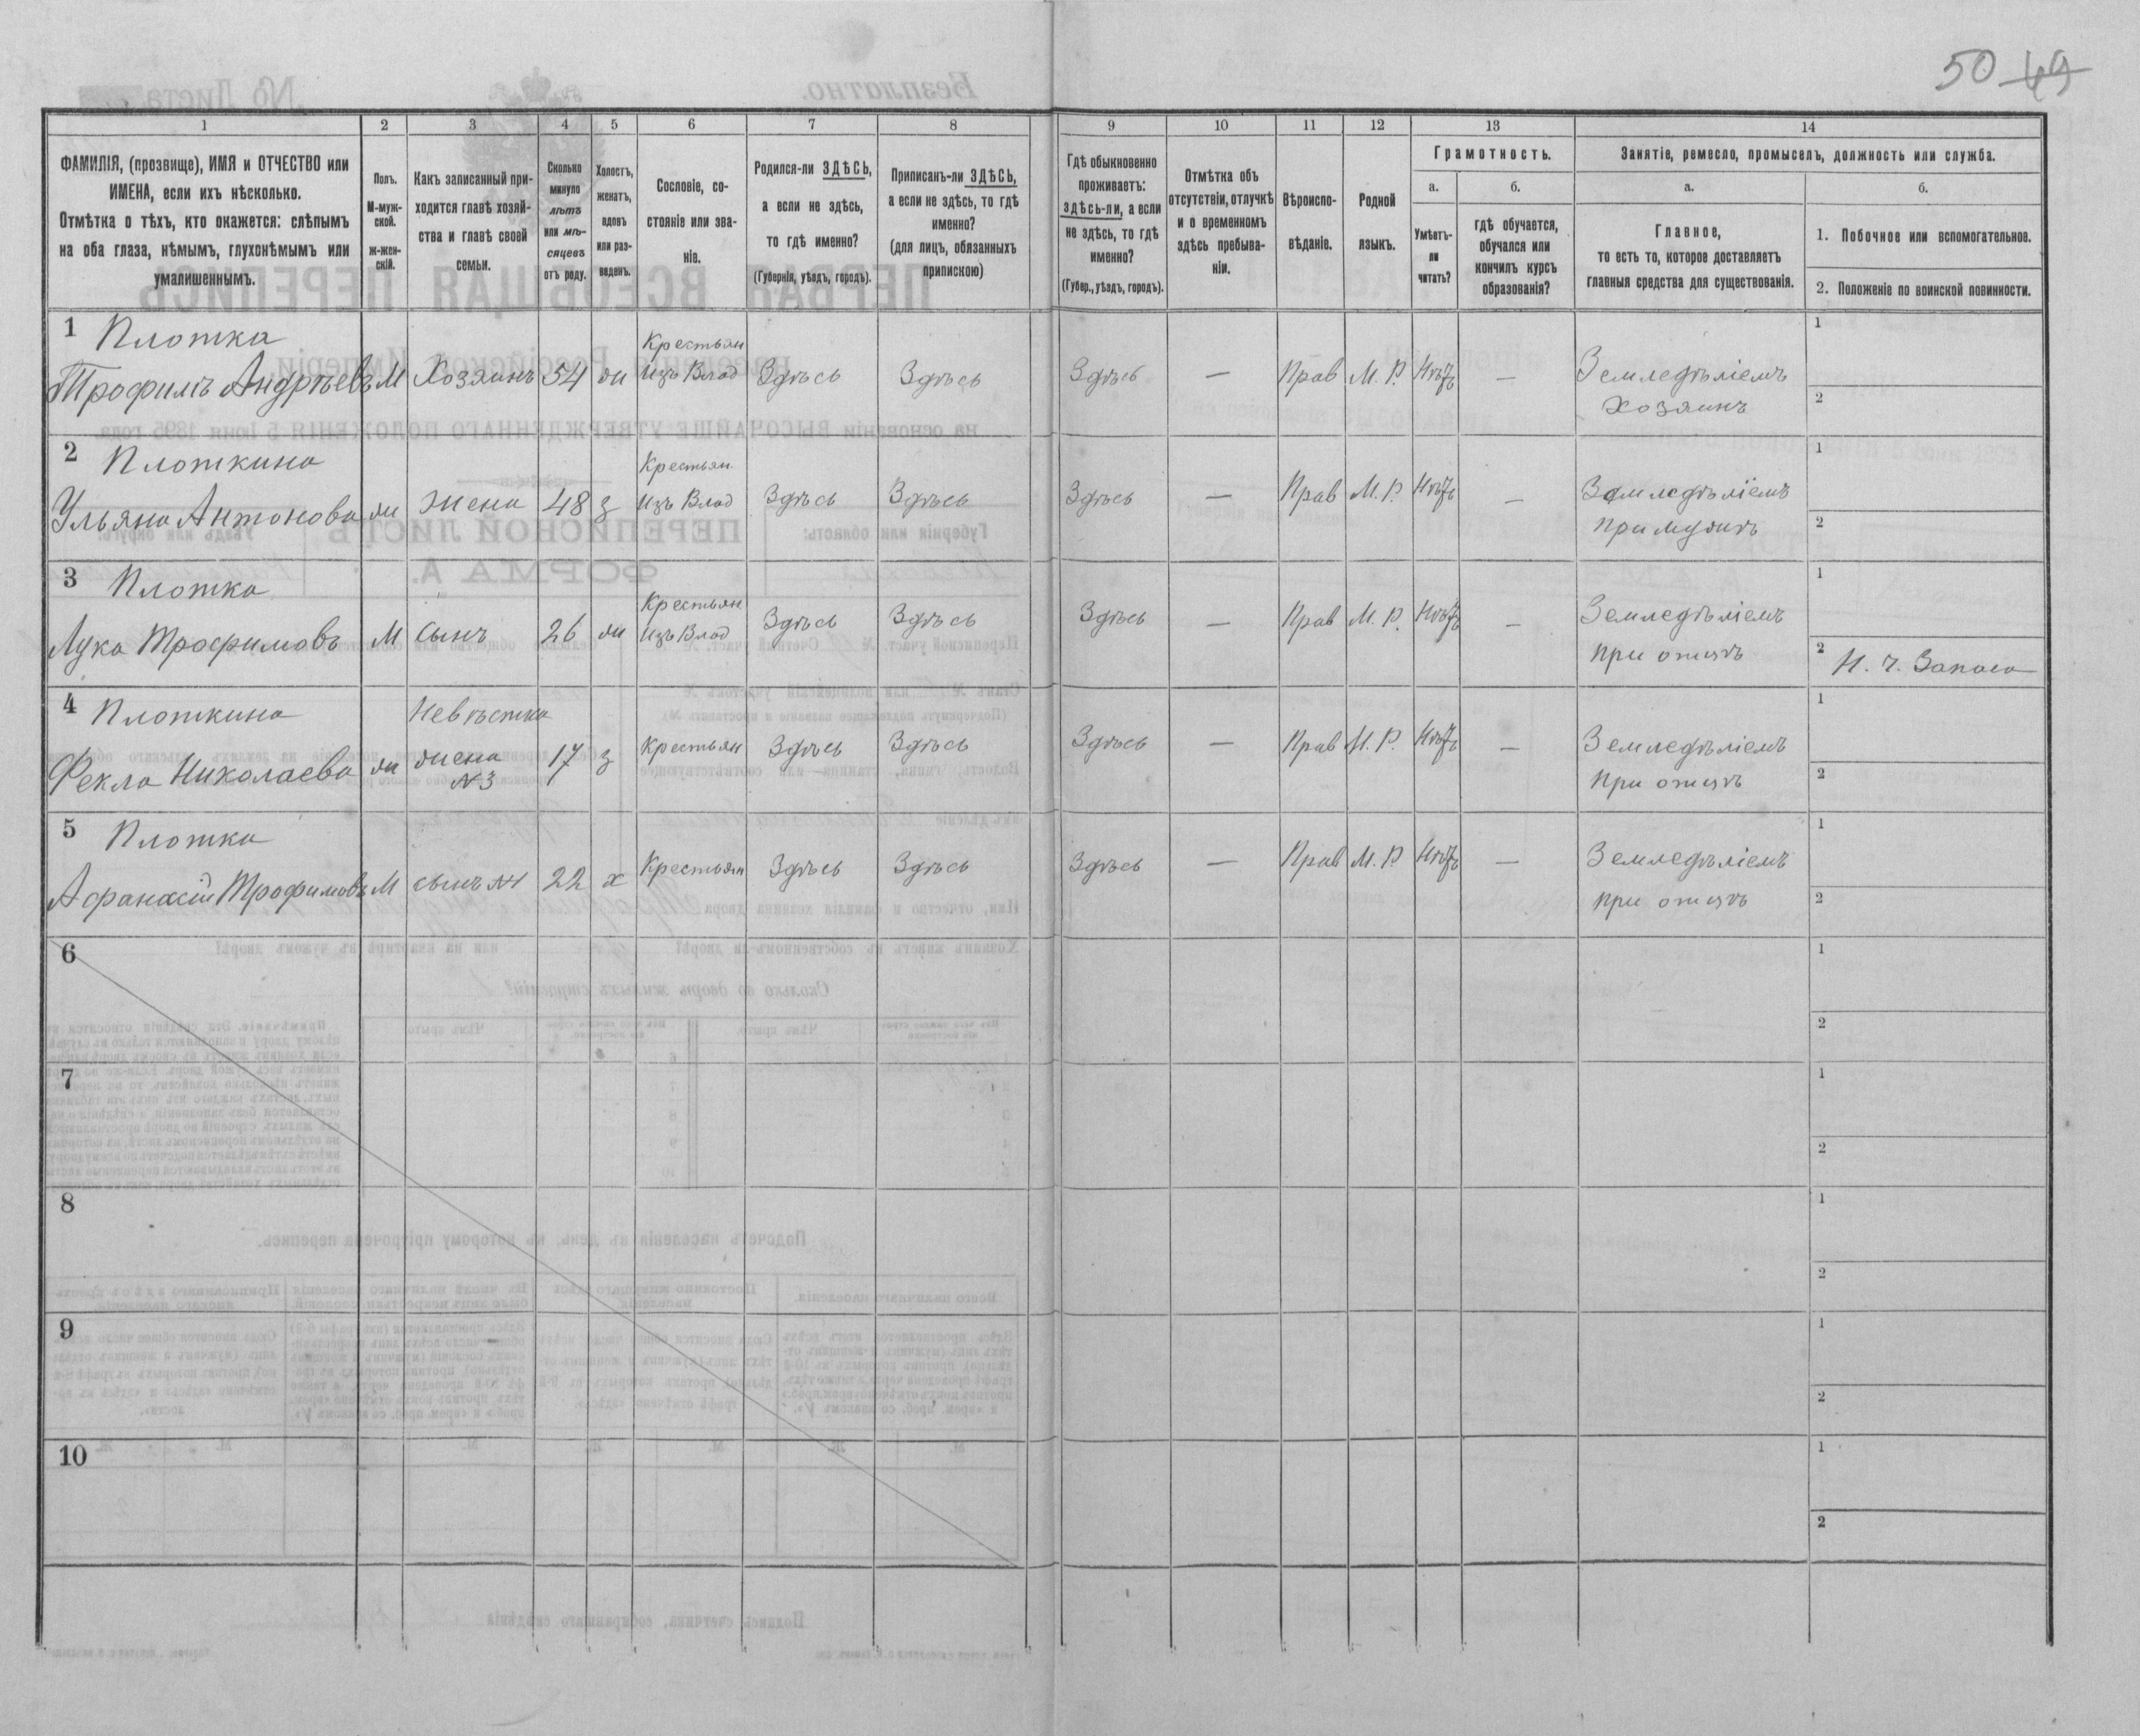 50 49
1 2 3 4 5 6 7 8 9 10 11 12 13 14
ФАМИЛІЯ, (прозвище), ИМЯ и ОТЧЕСТВО или
ИМЕНА, если ихъ нѣсколько.
Отмѣтка о тѣхъ, кто окажется: слѣпымъ
на оба глаза, нѣмымъ, глухонѣмымъ или
умалишеннымъ.
Полъ.
М-муж-
ской.
ж-жен-
скій.
Какъ записанный при-
ходится главѣ хозяй-
ства и главѣ своей
семьи.
Сколько
минуло
лѣтъ
или мѣ-
сяцевъ
отъ роду.
Холостъ,
женатъ,
вдовъ
или раз-
веденъ.
Сословіе, со-
стояніе или зва-
ніе.
Родился-ли ЗДѢСЬ,
а если не здѣсь,
то гдѣ именно?
(Губернія, уѣздъ, городъ).
Приписанъ-ли ЗДѢСЬ,
а если не здѣсь, то гдѣ
именно?
(для лицъ, обязанныхъ
припискою)
Гдѣ обыкновенно
проживаетъ:
здѣсь-ли, а если
не здѣсь, то гдѣ
именно?
(Губер., уѣздъ, городъ).
Отмѣтка объ
отсутствіи, отлучкѣ
и о временномъ
здѣсь пребыва-
ніи.
Вѣроиспо-
вѣданіе.
Родной
языкъ.
Грамотность.
а.
Умѣетъ-
ли
читать?
б.
гдѣ обучается,
обучался или
кончилъ курсъ
образованія?
Занятіе, ремесло, промыселъ, должность или служба.
а.
Главное,
то есть то, которое доставляетъ
главныя средства для существованія.
б.
1. Побочное или вспомогательное.
2. Положеніе по воинской повинности.
1 Плотка
Трофимъ Андрѣевъ М Хозяинъ 54 ж Крестьян Изъ Влад Здѣсь Здѣсь Здѣсь — Прав М. Р. Нѣтъ — Земледѣліемъ 1
Хозяинъ 2
2 Плоткина
Ульяна Антонова ж жена 48 з Крестьян Изъ Влад Здѣсь Здѣсь Здѣсь — Прав М. Р. Нѣтъ — Земледѣліемъ 1
при мужѣ 2
3 Плотка
Лука Трофимовъ М сынъ 26 ж Крестьян Изъ Влад Здѣсь Здѣсь Здѣсь — Прав М. Р. Нѣтъ — Земледѣліемъ 1
при отцѣ 2 Н. ч. Запаса
4 Плоткина Невѣстка
Фекла Николаева ж жена №3 17 з Крестьян Здѣсь Здѣсь Здѣсь — Прав М. Р. Нѣтъ — Земледѣліемъ 1
при отцѣ 2
5 Плотка
Афанасій Трофимовъ М сынъ №1 22 х Крестьян Здѣсь Здѣсь Здѣсь — Прав М. Р. Нѣтъ — Земледѣліемъ 1
при отцѣ 2
6 1
2
7 1
2
8 1
2
9 1
2
10 1
2